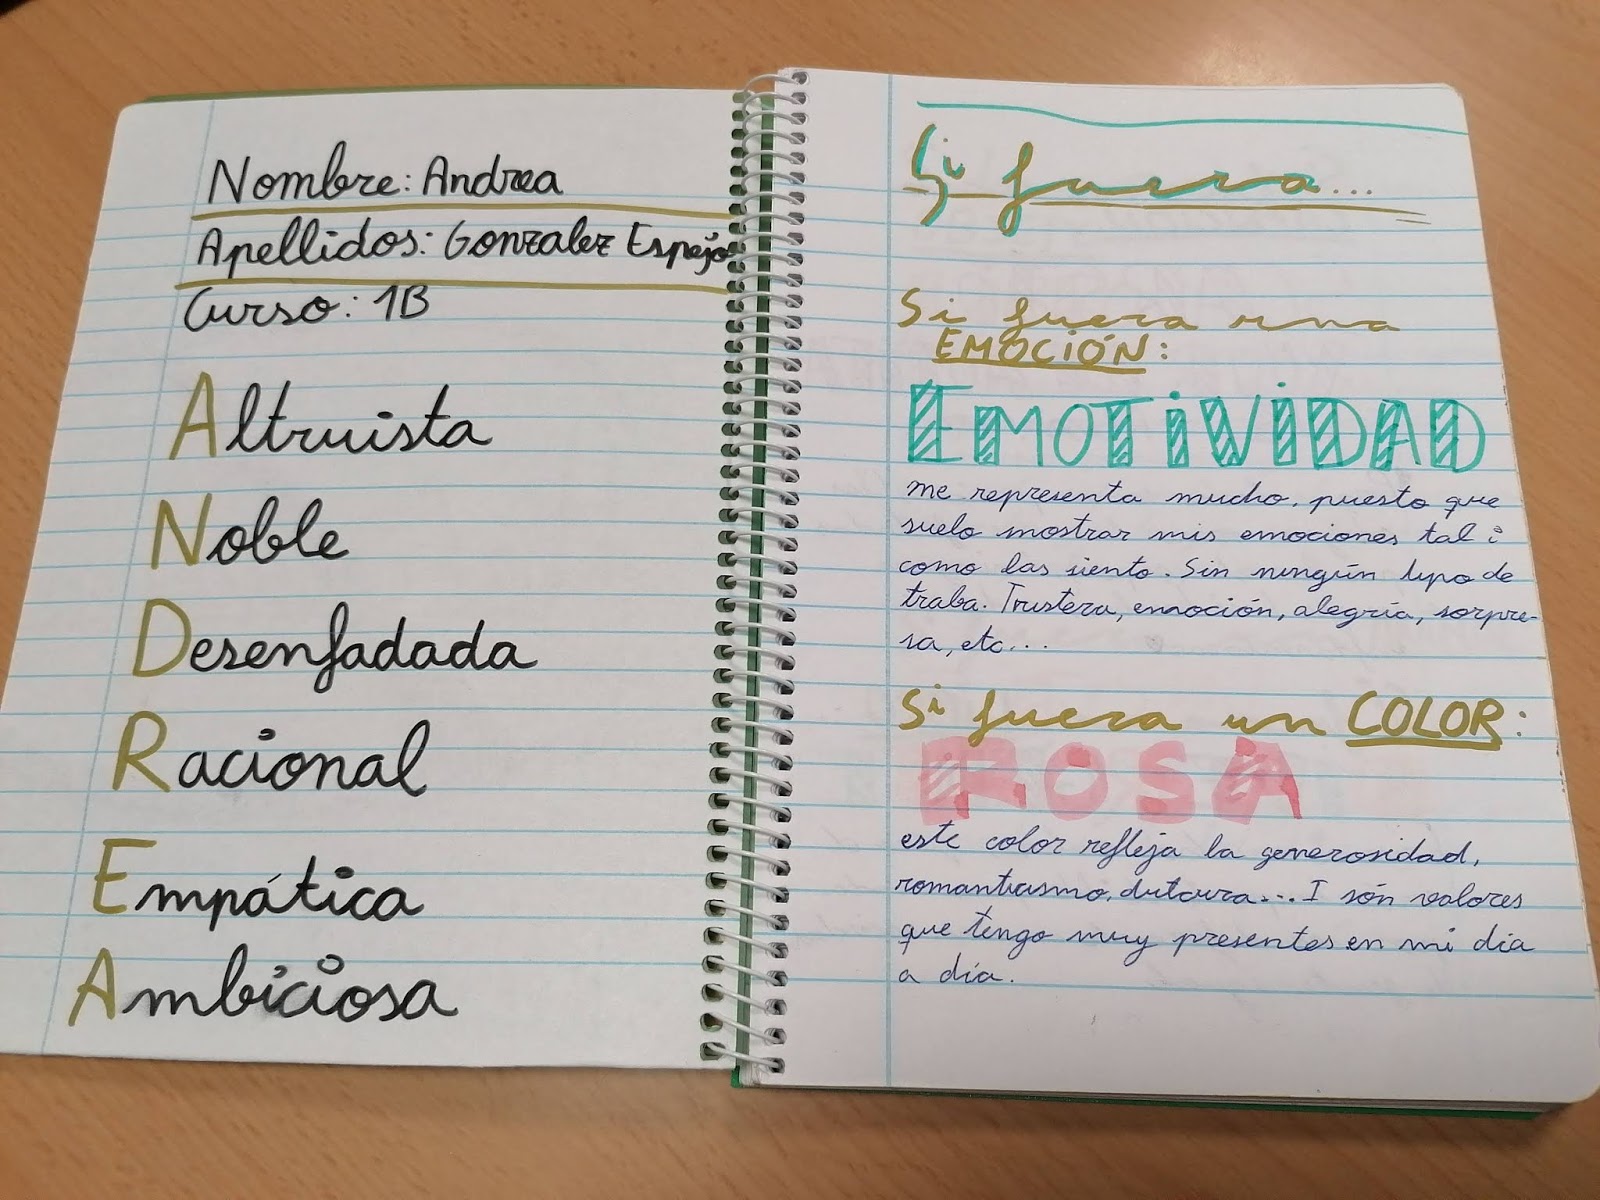 Nombre: Andrea
Apellidos: Gonzalez Espejo
Curso: 1B
Altruista
Noble
Desenfadada
Racional
Empática
Ambiciosa
Si fuera...
Si fuera una
EMOCIÓN:
EMOTIVIDAD
me representa mucho, puesto que
suelo mostrar mis emociones tal i
como las siento. Sin ningún tipo de
traba. Tristeza, emoción, alegría, sorpre-
sa, etc...
Si fuera un COLOR:
ROSA
este color refleja la generosidad,
romantiasmo, dulzura... I són valores
que tengo muy presentes en mi dia
a día.